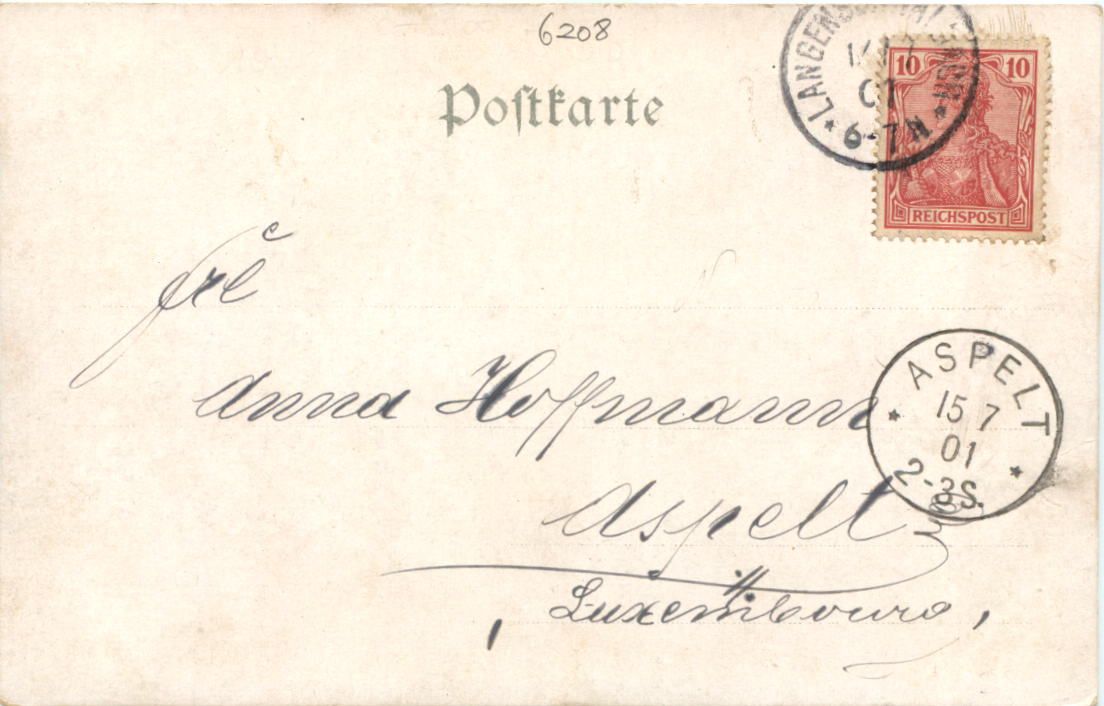 6208
Postkarte
LANGENSCHWAL
01
6-7N
10 10
REICHSPOST
Frl
Anna Hoffmann
Aspelt
Luxembourg,
ASPELT
15 7
01
2-3S.